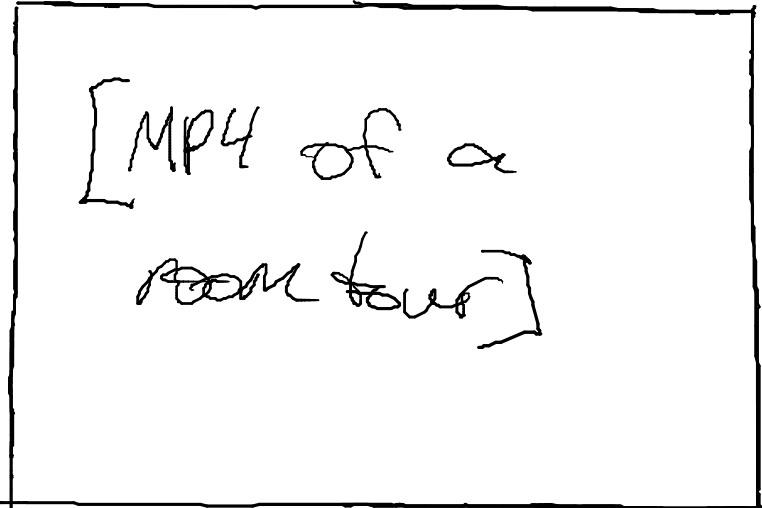 [MP4 of a
room tour]